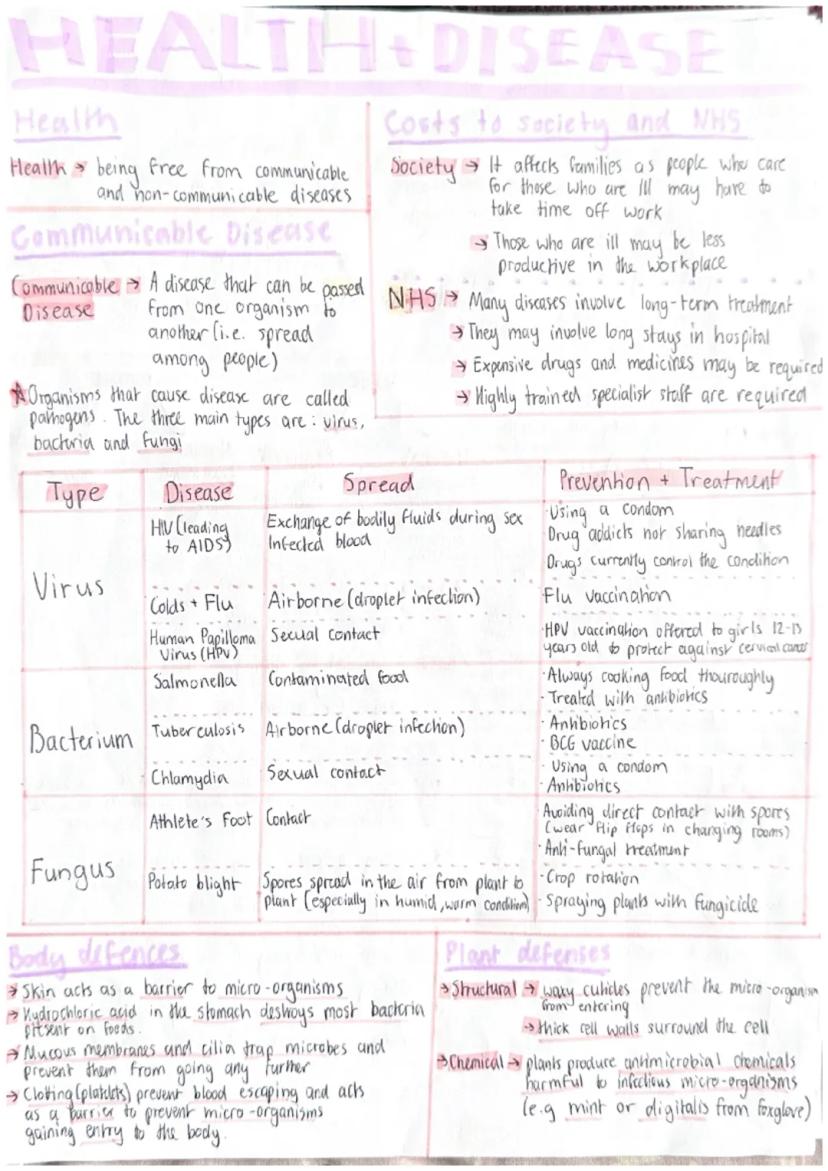 HEALTH + DISEASE
Health
Health → being free from communicable
and non-communicable diseases
Communicable Disease
Communicable → A disease that can be passed
Disease from one organism to
another (i.e. spread
among people)
☆Organisms that cause disease are called
pathogens. The three main types are: virus,
bacteria and fungi
Costs to society and NHS
Society → It affects families as people who care
for those who are ill may have to
take time off work
→ Those who are ill may be less
productive in the workplace
NHS → Many diseases involve long-term treatment
→ They may involve long stays in hospital
→ Expensive drugs and medicines may be required
→ Highly trained specialist staff are required
Type Disease Spread Prevention + Treatment
Virus
HIV (leading
to AIDS)
Exchange of bodily fluids during sex
Infected blood
·Using a condom
·Drug addicts not sharing needles
Drugs currently control the condition
Colds + Flu Airborne (droplet infection) Flu vaccination
Human Papilloma
Virus (HPV)
Sexual contact
·HPV vaccination offered to girls 12-13
years old to protect against cervical cancer
Bacterium
Salmonella Contaminated food
·Always cooking food thouroughly
·Treated with antibiotics
Tuberculosis Airborne (droplet infection)
·Antibiotics
·BCG vaccine
Chlamydia Sexual contact
·Using a condom
·Antibiotics
Fungus
Athlete's Foot Contact
Avoiding direct contact with spores
(wear flip flops in changing rooms)
·Anti-fungal treatment
Potato blight
Spores spread in the air from plant to
plant (especially in humid, warm condition)
·Crop rotation
·Spraying plants with fungicide
Body defences
→ Skin acts as a barrier to micro-organisms
→ Hydrochloric acid in the stomach destroys most bacteria
present on foods.
→ Mucous membranes and cilia trap microbes and
prevent them from going any further
→ Clotting (platelets) prevent blood escaping and acts
as a barrier to prevent micro-organisms
gaining entry to the body.
Plant defenses
→Structural → waxy cuticles prevent the micro-organism
from entering
→thick cell walls surround the cell
→Chemical → plants produce antimicrobial chemicals
harmful to infectious micro-organisms
(e.g mint or digitalis from foxglove)